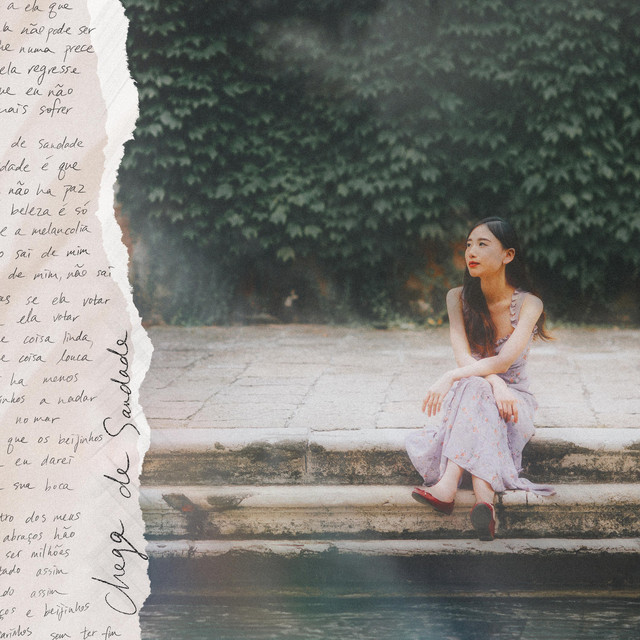 a ela que
la não pode ser
he numa prece
ela regresse
ue eu não
mais sofrer
de Saudade
dade é que
não ha paz
beleza é só
e a melancolia
o sai de mim
de mim, não sai
as se ela votar
ela votar
e coisa linda,
e coisa louca
ha menos
inhos a nadar
no mar
que os beijinhos
eu darei
sua boca
tro dos meus
abraços hão
ser milhões
tado assim
do assim
ços e beijinhos
carinhos sem ter fim
Chega de Saudade